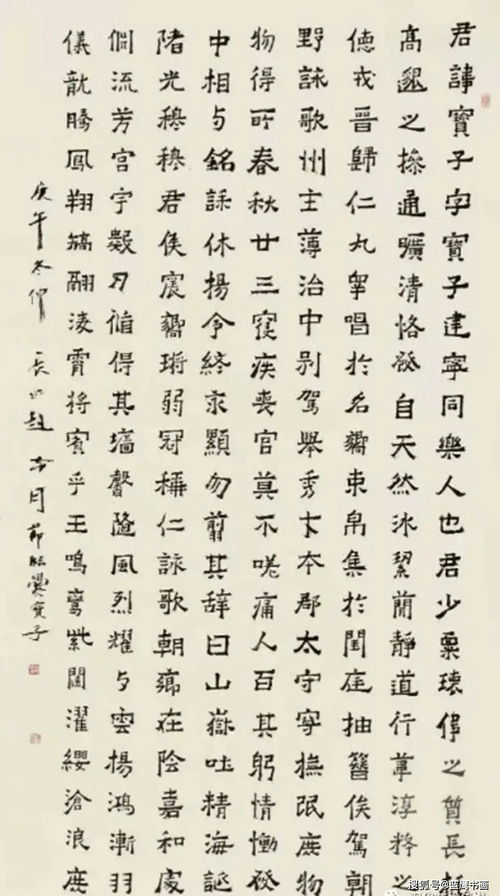 君諱寶子字寶子建寧同樂人也君少禀瓌偉之質長挺
高邈之操通曠清恪發自天然冰絜蕳静道行葦淳粋之
德戎晋歸仁九皋唱於名嚮束帛集於閨庭抽簪俟駕朝
野詠歌州主薄治中别駕舉秀才本郡太守寧撫氓庶物
物得所春秋廿三寑疾喪官莫不嗟痛人百其躬情慟發
中相与銘誄休揚令終永顯勿翦其辞曰山嶽吐精海誕
陼光穆穆君侯震嚮鏘弱冠稱仁詠歌朝鄉在陰嘉和處
淵流芳宫宇數刃循得其墙馨隨風烈耀与雲揚鴻漸羽
儀龍騰鳳翔矯翮淩霄將賓乎王鳴鸞紫闥濯纓滄浪庶
庚午冬仲 長山趙冷月節臨爨寶子